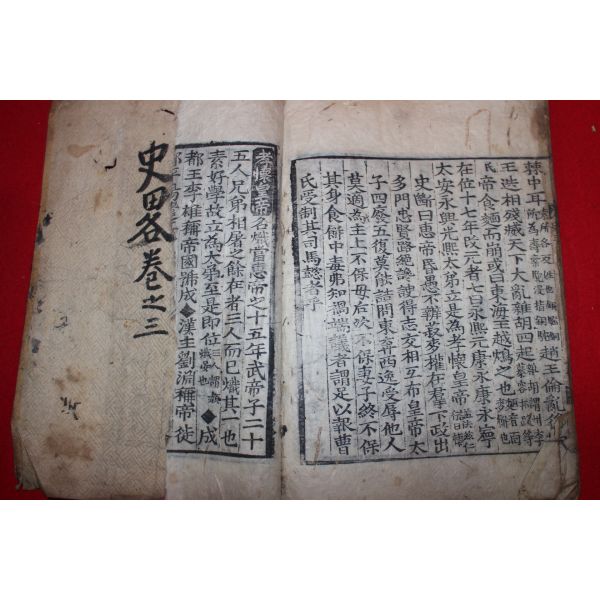 棘中耳 趙王倫亂
王迭相殘殺天下大亂雜胡四起
氏帝食麵而崩或曰東海王越鴆之也
在位十七年改元者七曰永熙元康永康永寧
太安永興光熙太弟立是為孝懷皇帝
史斷曰惠帝昏愚不辨菽麥權在羣下政出
多門忠賢路絕讒諛得志交相互布皇帝太
子四廢五復莫能詰問東奔西逃受辱他人
莫適為主上不保母后次不保妻子終不保
其身食餠中毒弗知禍端議者謂足以報曹
氏受制其司馬懿者乎
孝懷皇帝名熾皆惠帝之十五年武帝子二十
五人兄弟相屠之餘在者三人而已熾其一也
素好學故立為太弟至是即位 成
都王李雄稱帝國號成 漢主劉淵稱帝徙
史畧卷之三